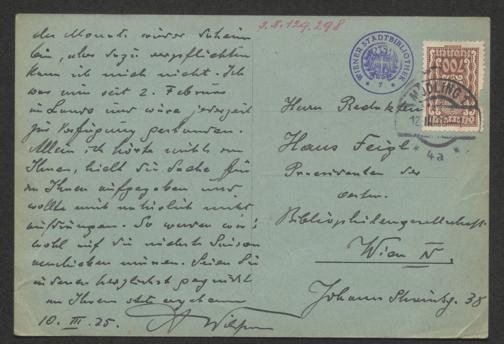 der Monats würde Scheim
bin, aber dazu verpflichten
kann ich mich nicht. Ich
war nun seit 2. Februar
im Lande und wäre jederzeit
zur Verfügung gestanden.
Allein ich hörte nichts von
Ihnen, hielt die Sache für
von Ihnen aufgegeben und
wollte mich natürlich nicht
aufdrängen. So werden wir's
wohl auf die nächste Saison
verschieben müssen. Seien Sie
indessen herzlichst gegrüßt
von Ihrem stets ergebenen
10. III. 25.
WIENER STADTBIBLIOTHEK
* 7 *
700
MÖDLING
12. III
* 4a *
Herrn Redakteur
Hans Feigl
Praesidenten der
oesterr.
Bibliophilengesellschaft
Wien IV.
Johann Straussg. 38